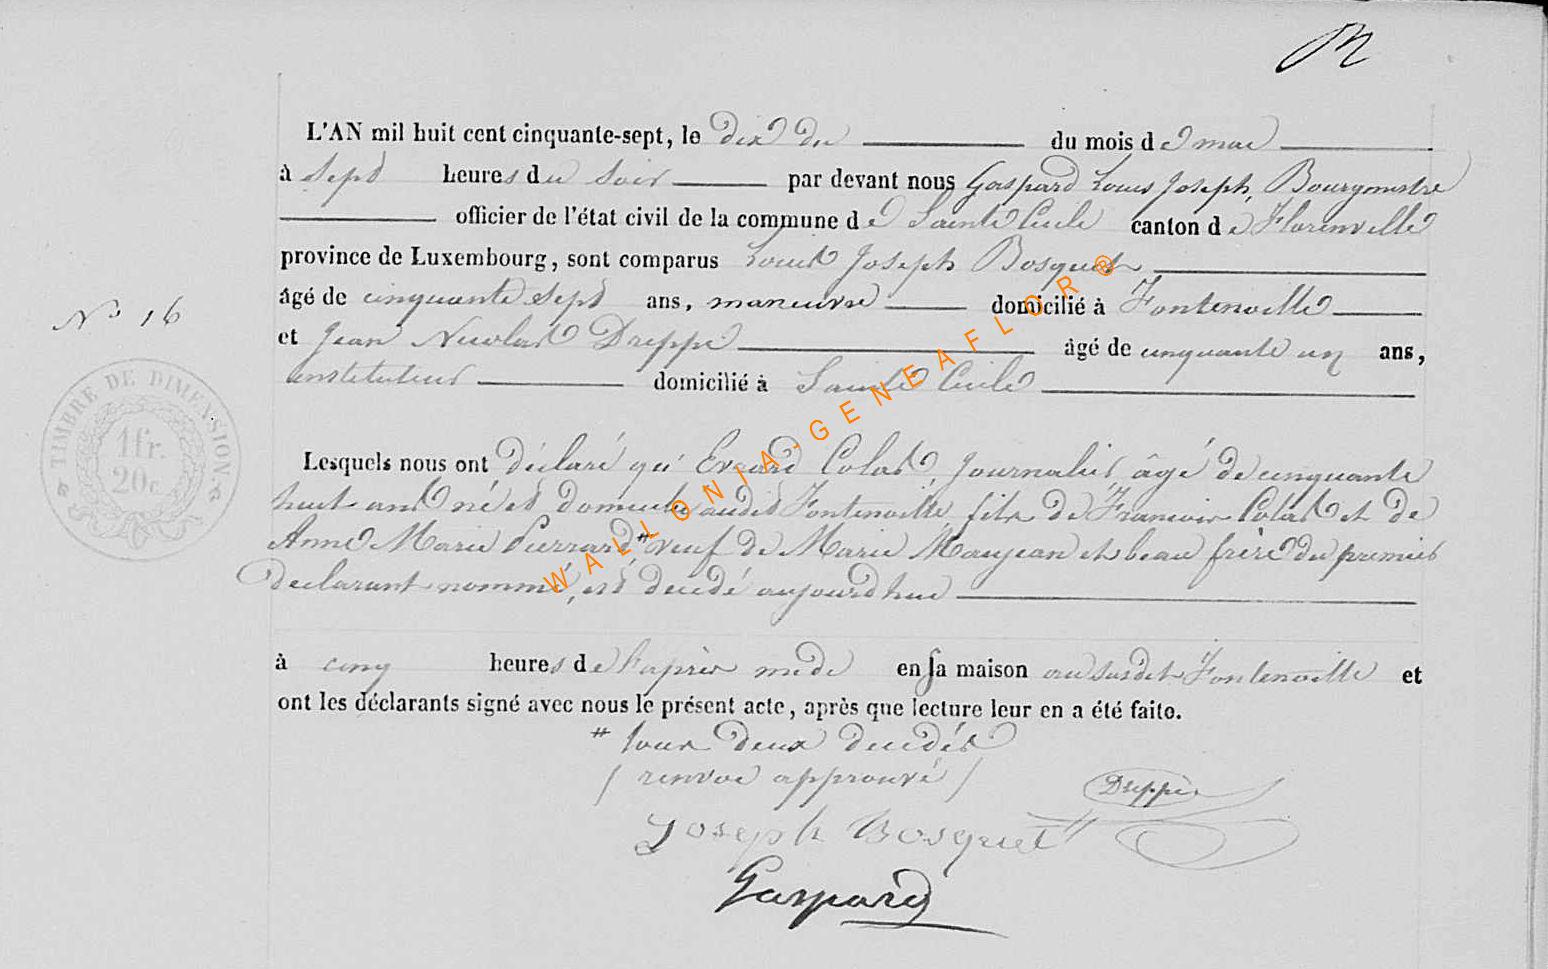 L'AN mil huit cent cinquante-sept, le dix du du mois de mai
à sept heures du soir par devant nous Gaspard Louis Joseph, Bourgmestre
officier de l'état civil de la commune de Sainte Cécile canton de Florenville
province de Luxembourg, sont comparus Louis Joseph Bosquet
âgé de cinquante sept ans, maneuvre domicilié à Fontenoille
et Jean Nicolas Dreppe âgé de cinquante un ans,
instituteur domicilié à Sainte Cécile
N° 16
TIMBRE DE DIMENSION
1 fr.
20 c
Lesquels nous ont déclaré qu' Evrard Colas, journalier, âgé de cinquante
huit ans né et domicilié audit Fontenoille, fils de François Colas et de
Anne Marie Pierrard # veuf de Marie Maujean et beau frère du premier
déclarant nommé, est décédé aujourd'hui
à cinq heures de l'après midi en sa maison au susdit Fontenoille et
ont les déclarants signé avec nous le présent acte, après que lecture leur en a été faite.
# tous deux décédés
/ renvoi approuvé /
Dreppe
Joseph Bosquet
Gaspard
WALLONIA-GENEAFLOR®